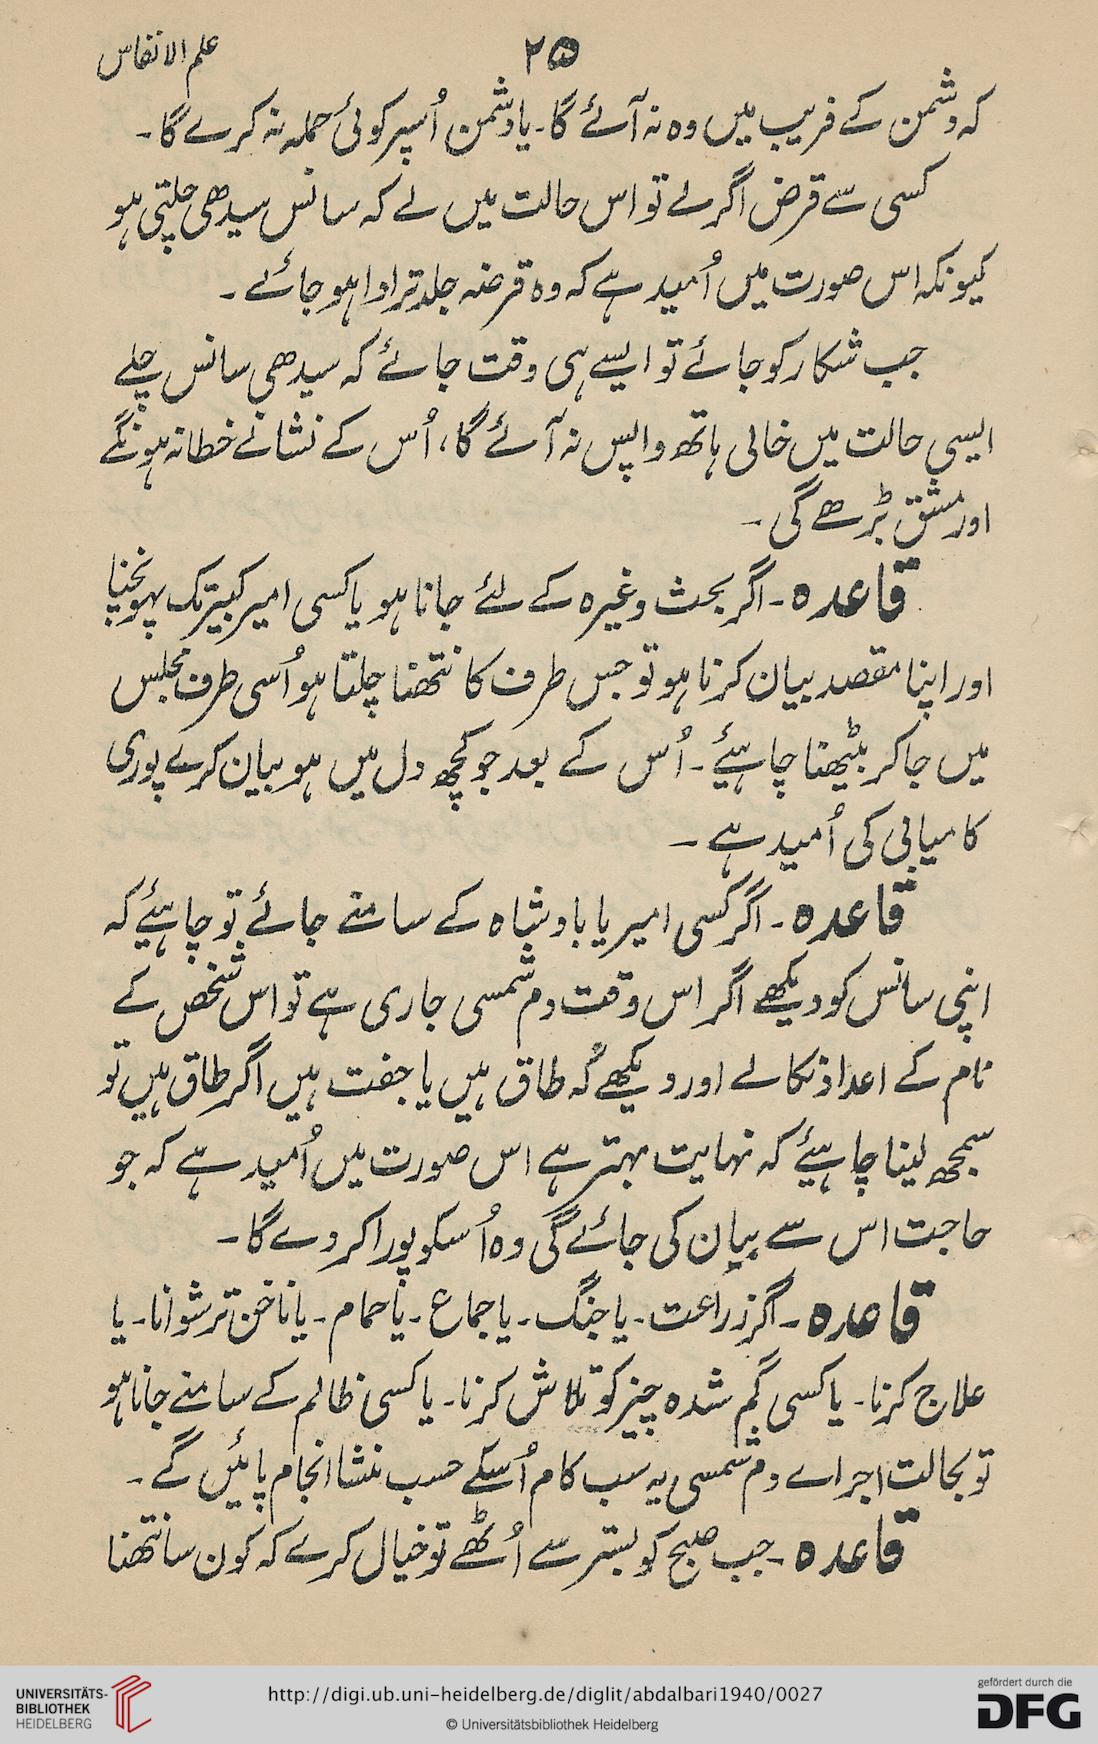 ۲۵
علم الانفاس
کہ دشمن کے فریب میں وہ نہ آئے گا۔ یا دشمن اُسپر کوئی حملہ نہ کرے گا۔
کسی سے قرض اگر لے تو اس حالت میں لے کہ سانس سیدھی چلتی ہو
کیونکہ اس صورت میں اُمید ہے کہ وہ قرضہ جلد تر ادا ہو جائے۔
جب شکار کو جائے تو ایسے ہی وقت جائے کہ سیدھی سانس چلے
ایسی حالت میں خالی ہاتھ واپس نہ آئے گا، اُس کے نشانے خطا نہ ہونگے
اور مشق بڑھے گی۔
قاعدہ۔ اگر بحث وغیرہ کے لئے جانا ہو یا کسی امیر کبیر تک پہونچنا
اور اپنا مقصد بیان کرنا ہو تو جس طرف کا نتھنا چلتا ہو اُسی طرف مجلس
میں جا کر بیٹھنا چاہئے۔ اُس کے بعد جو کچھ دل میں ہو بیان کرے پوری
کامیابی کی اُمید ہے۔
قاعدہ۔ اگر کسی امیر یا بادشاہ کے سامنے جائے تو چاہئے کہ
اپنی سانس کو دیکھے اگر اس وقت دم شمسی جاری ہے تو اس شخص کے
نام کے اعداد نکالے اور دیکھے کہ طاق ہیں یا جفت ہیں اگر طاق ہیں تو
سمجھ لینا چاہئے کہ نہایت بہتر ہے اس صورت میں اُمید ہے کہ جو
حاجت اس سے بیان کی جائے گی وہ اُسکو پورا کر دے گا۔
قاعدہ۔ اگر زراعت۔ یا جنگ۔ یا جماع۔ یا حمام۔ یا ناخن ترشوانا۔ یا
علاج کرنا۔ یا کسی گم شدہ چیز کو تلاش کرنا۔ یا کسی ظالم کے سامنے جانا ہو
تو بحالت اجرائے دم شمسی یہ سب کام اُسکے حسب منشا انجام پائیں گے۔
قاعدہ۔ جب صبح کو بستر سے اُٹھے تو خیال کرے کہ کون سا نتھنا
UNIVERSITÄTS-
BIBLIOTHEK
HEIDELBERG
http://digi.ub.uni-heidelberg.de/diglit/abdalbari1940/0027
© Universitätsbibliothek Heidelberg
gefördert durch die
DFG